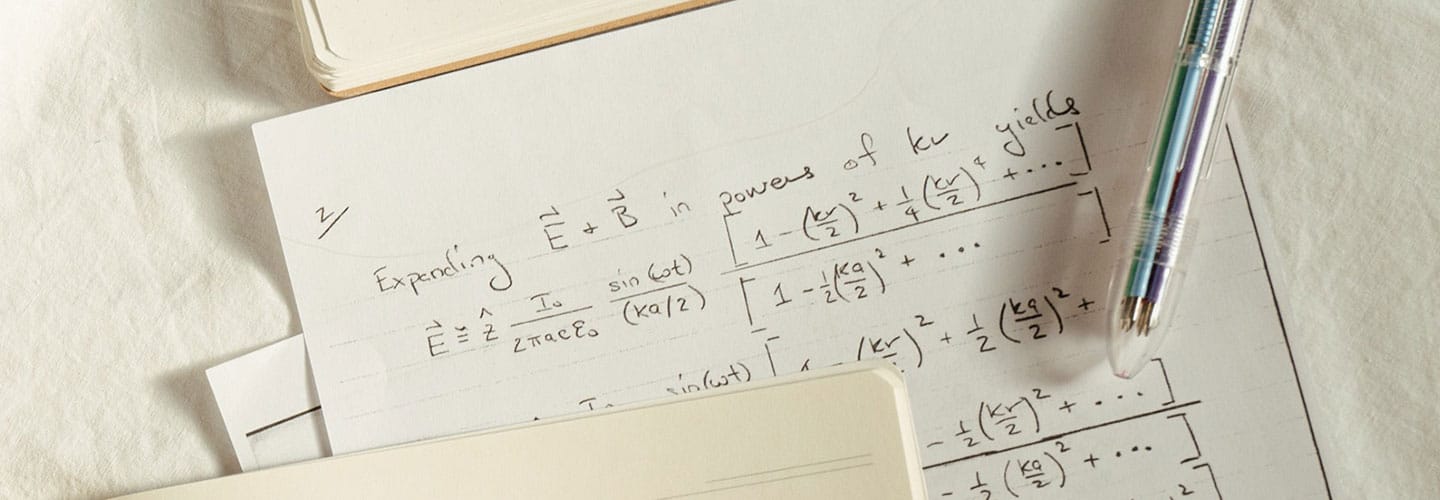 2/
Expanding E⃗ + B⃗ in powers of kr yields
E⃗ ≅ ẑ I₀/(2πacε₀) sin(ωt)/(ka/2) [1 - (kr/2)² + 1/4(kr/2)⁴ + ...] / [1 - 1/2(ka/2)² + ...]
sin(ωt) [1 - (kr/ )² + 1/2(ka/2)² +
- 1/2(kr/2)² + ...]
- 1/2(ka/2)² + ...]